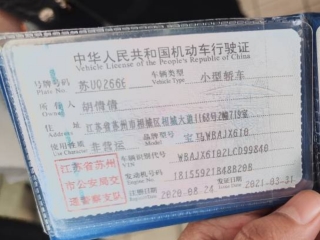 中华人民共和国机动车行驶证
Vehicle License of the People's Republic of China
号牌号码 苏UQ266E 车辆类型 小型轿车
Plate No. Vehicle Type
所有人 胡倩倩
住址 江苏省苏州市相城区相城大道1168号2幢719室
使用性质 非营运 品牌型号 宝马WBAJX610
江苏省苏州市公安局交通警察支队
车辆识别代号 WBAJX6102LCD99840
发动机号码 18155921B48B20B
Engine No.
注册日期 2020-08-24 发证日期 2021-03-31